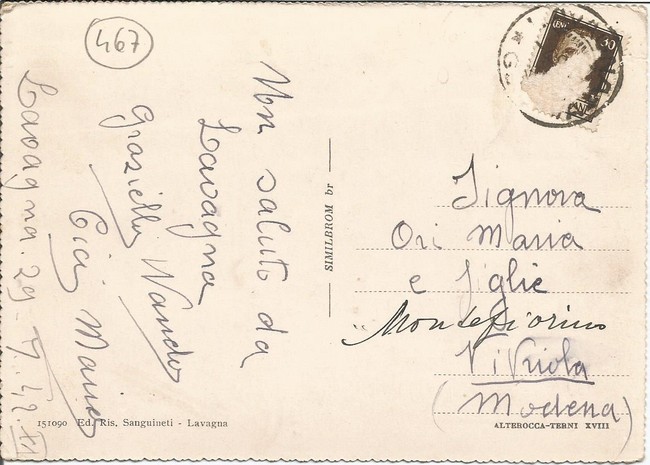 467
Un saluto da
Lavagna
Graziella Nando
Lavagna. 29-7.42
CENT 30
SIMILBROM br
Signora
Ori Maria
e figlie
Montefiorino
Vitriola
(Modena)
151090 Ed. Ris. Sanguineti - Lavagna
ALTEROCCA-TERNI XVIII